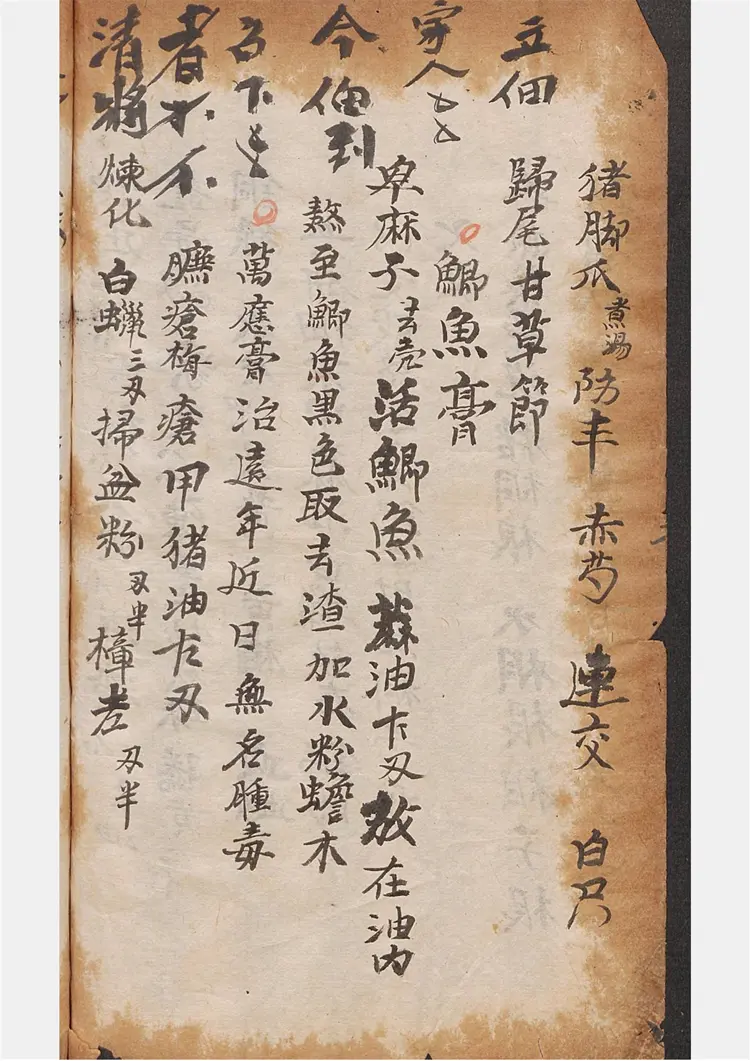 猪脚爪煮湯 防丰 赤芍 連交 白只
歸尾甘草節
鯽魚膏
卑麻子去壳活鯽魚蔴油卞刄放在油内
熬至鯽魚黑色取去渣加水粉蟾木
萬應膏治遠年近日無名腫毒
臁瘡梅瘡甲猪油卞刄
煉化 白蠟三刄掃盆粉刄半樟
刄半
立佃
今佃到
不
者
清將